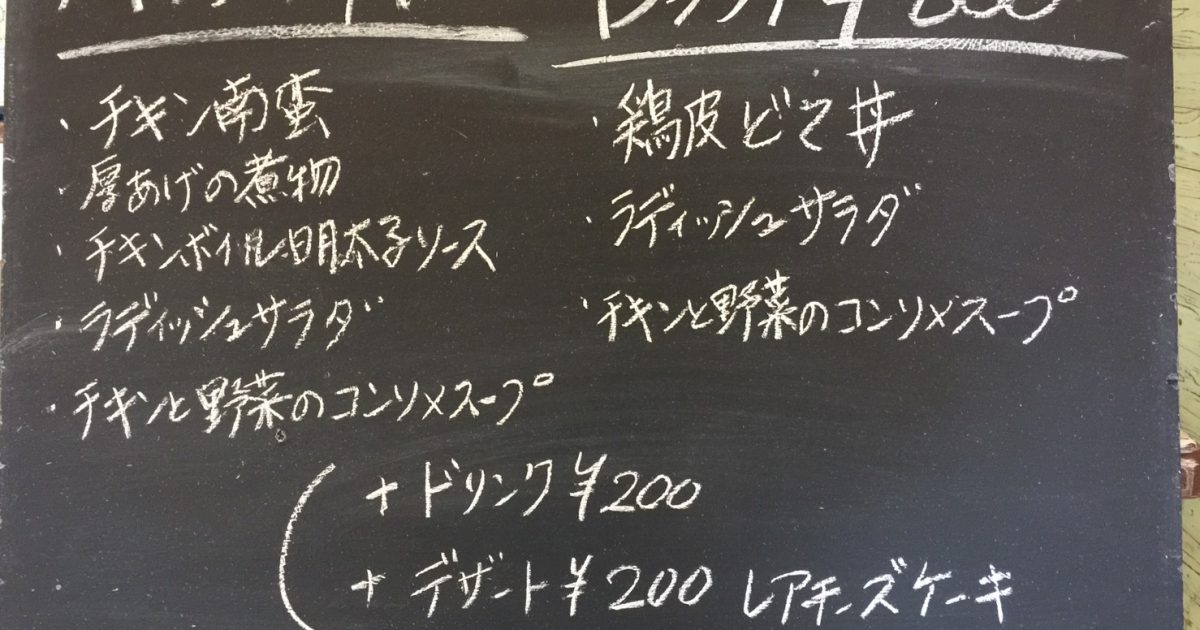 ¥800
・チキン南蛮
・厚あげの煮物
・チキンボイル明太子ソース
・ラディッシュサラダ
・チキンと野菜のコンソメスープ
・鶏皮どて丼
・ラディッシュサラダ
・チキンと野菜のコンソメスープ
+ ドリンク ¥200
+ デザート ¥200 レアチーズケーキ